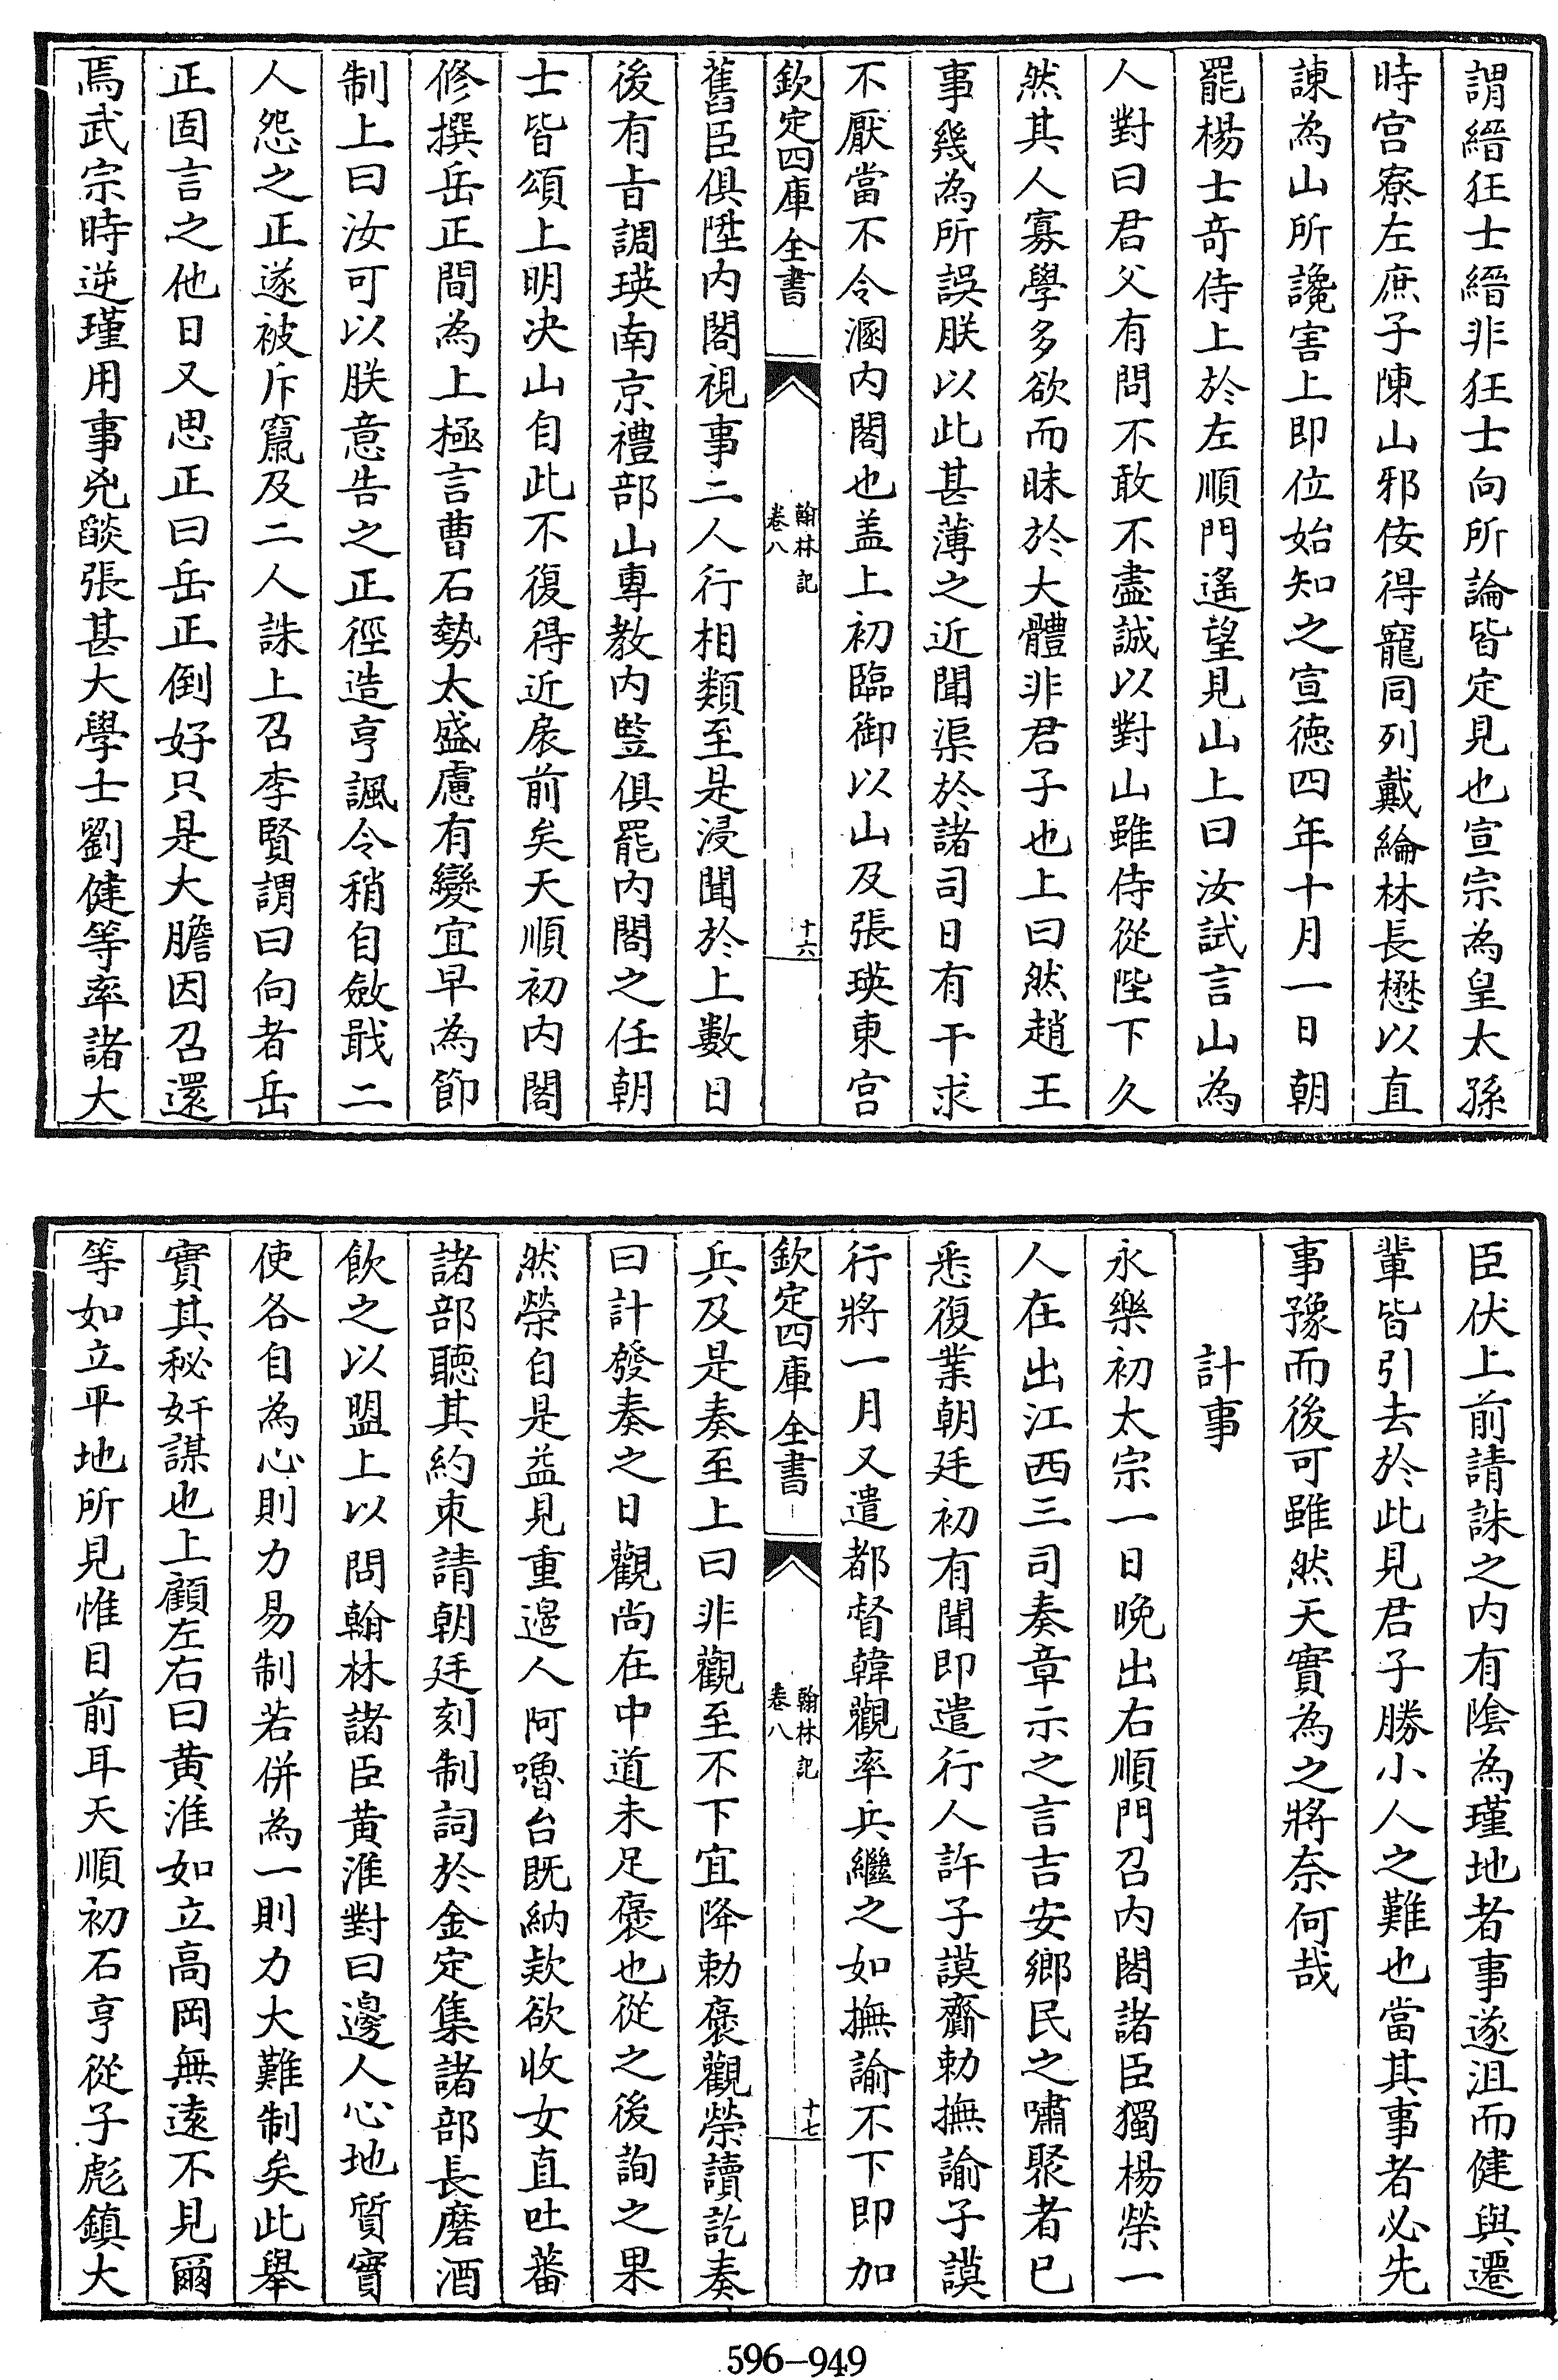 謂縉狂士縉非狂士向所論皆定見也宣宗為皇太孫
時宫寮左庶子陳山邪佞得寵同列戴綸林長懋以直
諫為山所讒害上即位始知之宣徳四年十月一日朝
罷楊士竒侍上於左順門遙望見山上曰汝試言山為
人對曰君父有問不敢不盡誠以對山雖侍從陛下久
然其人寡學多欲而昧於大體非君子也上曰然趙王
事幾為所誤朕以此甚薄之近聞渠於諸司日有干求
不厭當不令溷内閣也盖上初臨御以山及張瑛東宫
欽定四庫全書
翰林記
卷八
十六
舊臣俱陞内閣視事二人行相類至是浸聞於上數日
後有㫖調瑛南京禮部山専教内竪俱罷内閣之任朝
士皆頌上明决山自此不復得近扆前矣天順初内閣
修撰岳正間為上極言曹石勢太盛慮有變宜早為節
制上曰汝可以朕意告之正徑造亨諷令稍自斂戢二
人怨之正遂被斥竄及二人誅上召李賢謂曰向者岳
正固言之他日又思正曰岳正倒好只是大膽因召還
焉武宗時逆瑾用事兇燄張甚大學士劉健等率諸大
臣伏上前請誅之内有隂為瑾地者事遂沮而健與遷
輩皆引去於此見君子勝小人之難也當其事者必先
事豫而後可雖然天實為之將奈何哉
計事
永樂初太宗一日晚出右順門召内閣諸臣獨楊榮一
人在出江西三司奏章示之言吉安鄉民之嘯聚者已
悉復業朝廷初有聞即遣行人許子謨齎勅撫諭子謨
行將一月又遣都督韓觀率兵繼之如撫諭不下即加
欽定四庫全書
翰林記
卷八
十七
兵及是奏至上曰非觀至不下宜降勅褒觀榮讀訖奏
曰計發奏之日觀尚在中道未足褒也從之後詢之果
然榮自是益見重邉人阿嚕台既納欵欲收女直吐蕃
諸部聽其約束請朝廷刻制詞於金定集諸部長磨酒
飲之以盟上以問翰林諸臣黄淮對曰邊人心地質實
使各自為心則力易制若併為一則力大難制矣此舉
實其秘奸謀也上顧左右曰黄淮如立高岡無逺不見爾
等如立平地所見惟目前耳天順初石亨從子彪鎮大
596-949